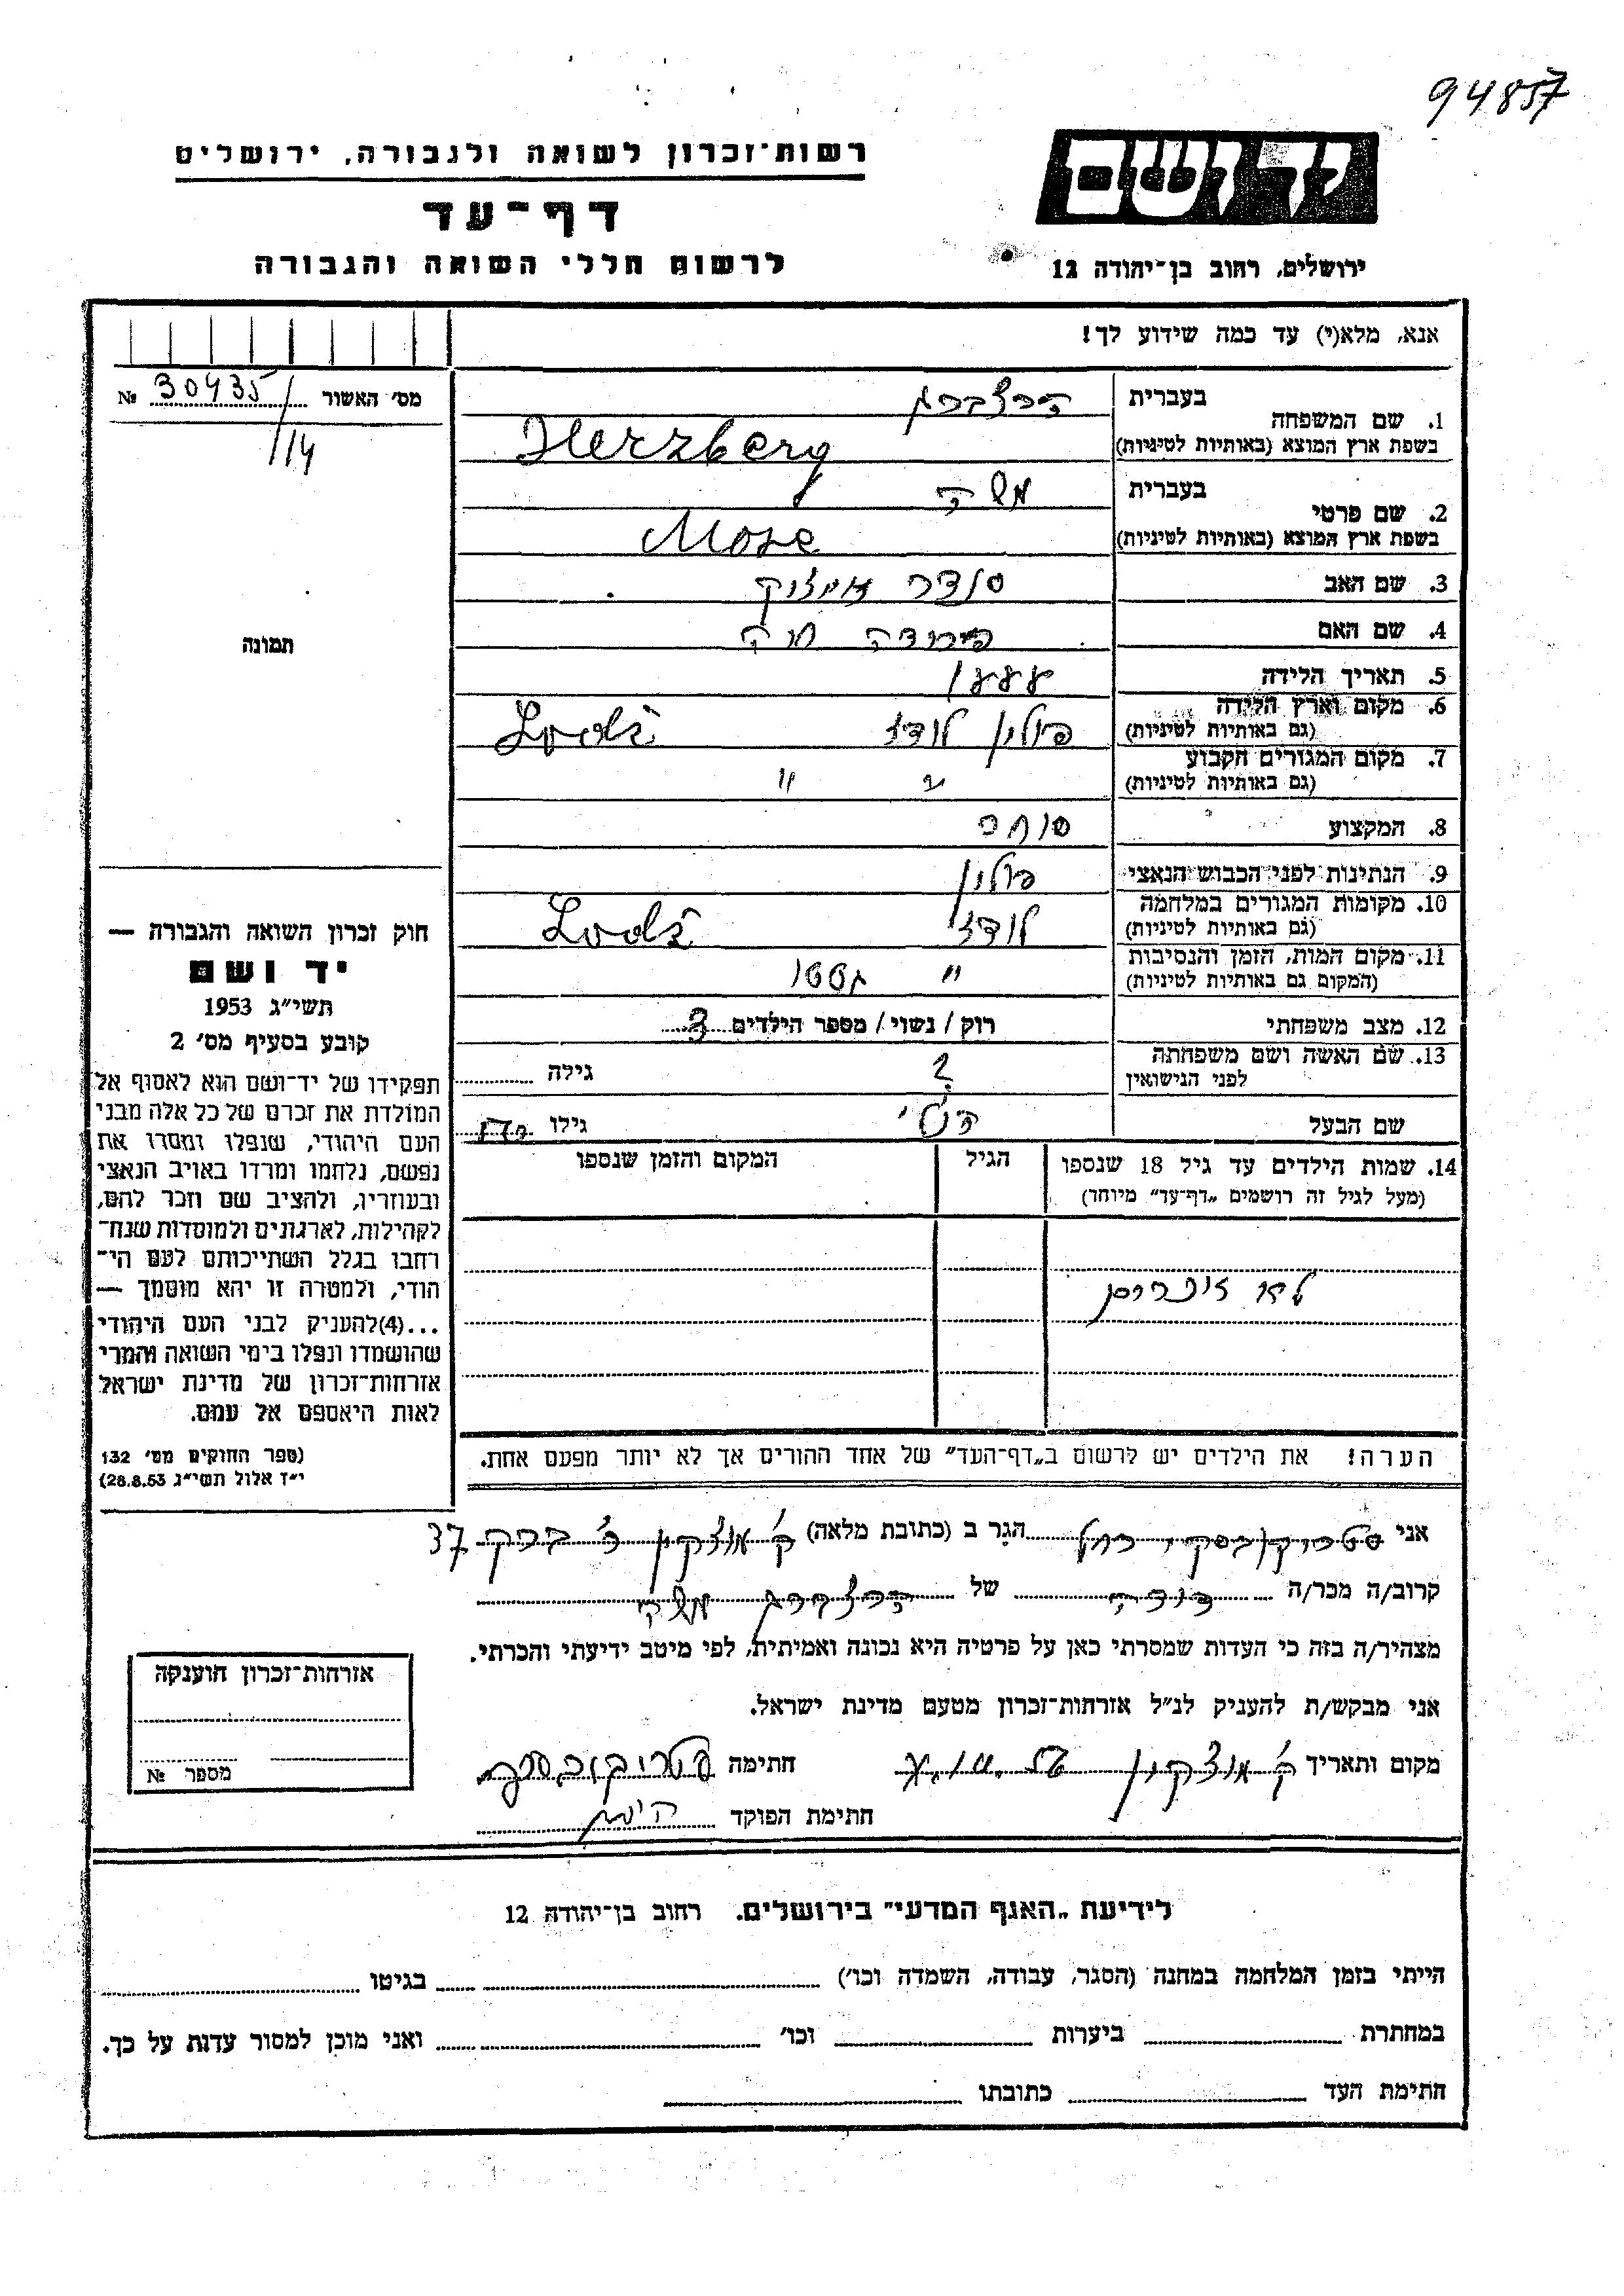 94857
יד ושם
רשות־זכרון לשואה ולגבורה, ירושלים
דף־עד
לרשום חללי השואה והגבורה
ירושלים, רחוב בן־יהודה 12
אנא, מלא(י) עד כמה שידוע לך!
מס׳ האשור 30435 №
/14
תמונה
1. שם המשפחה בעברית הרצברג
בשפת ארץ המוצא (באותיות לטיניות) Herzberg
2. שם פרטי בעברית משה
בשפת ארץ המוצא (באותיות לטיניות) Mose
3. שם האב סנדר איציק
4. שם האם פרומה חיה
5. תאריך הלידה 1888
6. מקום וארץ הלידה פולין לודז Lodź
(גם באותיות לטיניות)
7. מקום המגורים הקבוע " "
(גם באותיות לטיניות)
8. המקצוע סוחר
9. הנתינות לפני הכבוש הנאצי פולין
10. מקומות המגורים במלחמה לודז Lodź
(גם באותיות לטיניות)
11. מקום המות, הזמן והנסיבות " גטטו
(המקום גם באותיות לטיניות)
12. מצב משפחתי רוק / נשוי / מספר הילדים 3
13. שם האשה ושם משפחתה ? גילה
לפני הנישואין
שם הבעל גילו
14. שמות הילדים עד גיל 18 שנספו הגיל המקום והזמן שנספו
(מעל לגיל זה רושמים „דף־עד" מיוחד)
לא
הערה! את הילדים יש לרשום ב„דף־העד" של אחד ההורים אך לא יותר מפעם אחת.
חוק זכרון השואה והגבורה —
יד ושם
תשי״ג 1953
קובע בסעיף מס׳ 2
תפקידו של יד־ושם הוא לאסוף אל
המולדת את זכרם של כל אלה מבני
העם היהודי, שנפלו ומסרו את
נפשם, נלחמו ומרדו באויב הנאצי
ובעוזריו, ולהציב שם וזכר להם,
לקהילות, לארגונים ולמוסדות שנח־
רחבו בגלל השתייכותם לעם הי־
הודי, ולמטרה זו יהא מוסמך —
...(4)להעניק לבני העם היהודי
שהושמדו ונפלו בימי השואה והמרי
אזרחות־זכרון של מדינת ישראל
לאות היאספם אל עמם.
(ספר החוקים מס׳ 132
י״ז אלול תשי״ג 28.8.53)
אני סטריקובסקי רחל הגר ב (כתובת מלאה) ק׳ מוצקין 37
קרוב/ה מכר/ה של הרצברג משה
מצהיר/ה בזה כי העדות שמסרתי כאן על פרטיה היא נכונה ואמיתית, לפי מיטב ידיעתי והכרתי.
אני מבקש/ת להעניק לנ״ל אזרחות־זכרון מטעם מדינת ישראל.
מקום ותאריך ק׳ מוצקין חתימה סטריקובסקי
חתימת הפוקד
אזרחות־זכרון הוענקה
מספר №
לידיעת „האגף המדעי" בירושלים. רחוב בן־יהודה 12
הייתי בזמן המלחמה במחנה (הסגר, עבודה, השמדה וכו׳) בגיטו
במחתרת ביערות וכו׳ ואני מוכן למסור עדות על כך.
חתימת העד כתובתו